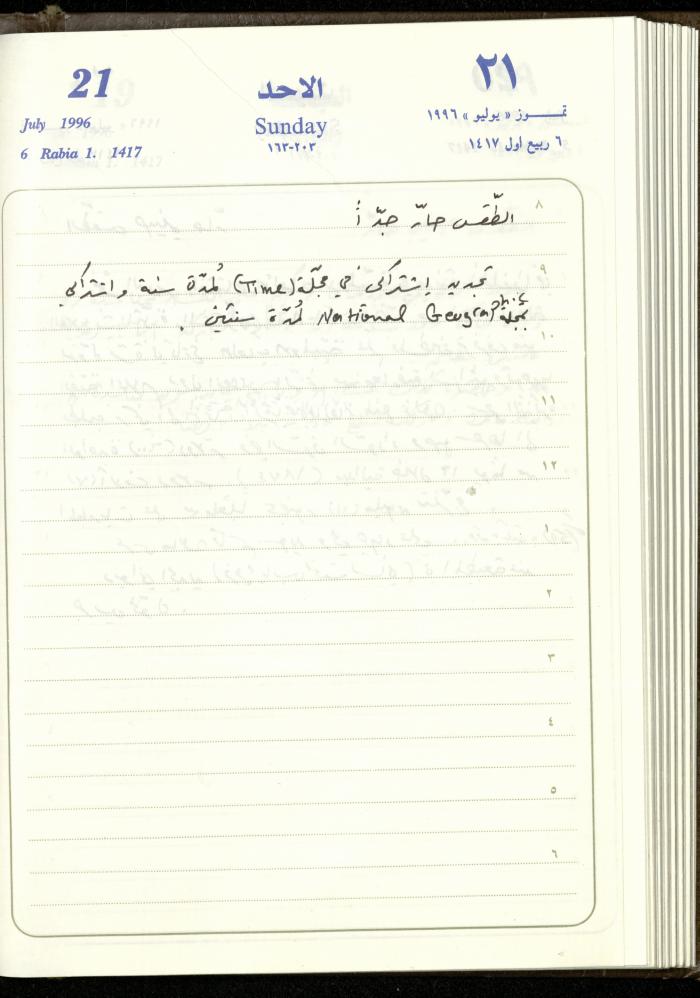 21
الاحد
٢١
July 1996
Sunday
تمـــوز « يوليو » ١٩٩٦
6 Rabia 1. 1417
١٦٣-٢٠٣
٦ ربيع اول ١٤١٧
٨
الطّقس حارّ جدّاً
٩
تجديد إشتراكي في مجلّة (Time) لمدّة سنة واشتراكي
بمجلة National Geographic لمدّة سنتين .
١٠
١١
١٢
١
٢
٣
٤
٥
٦